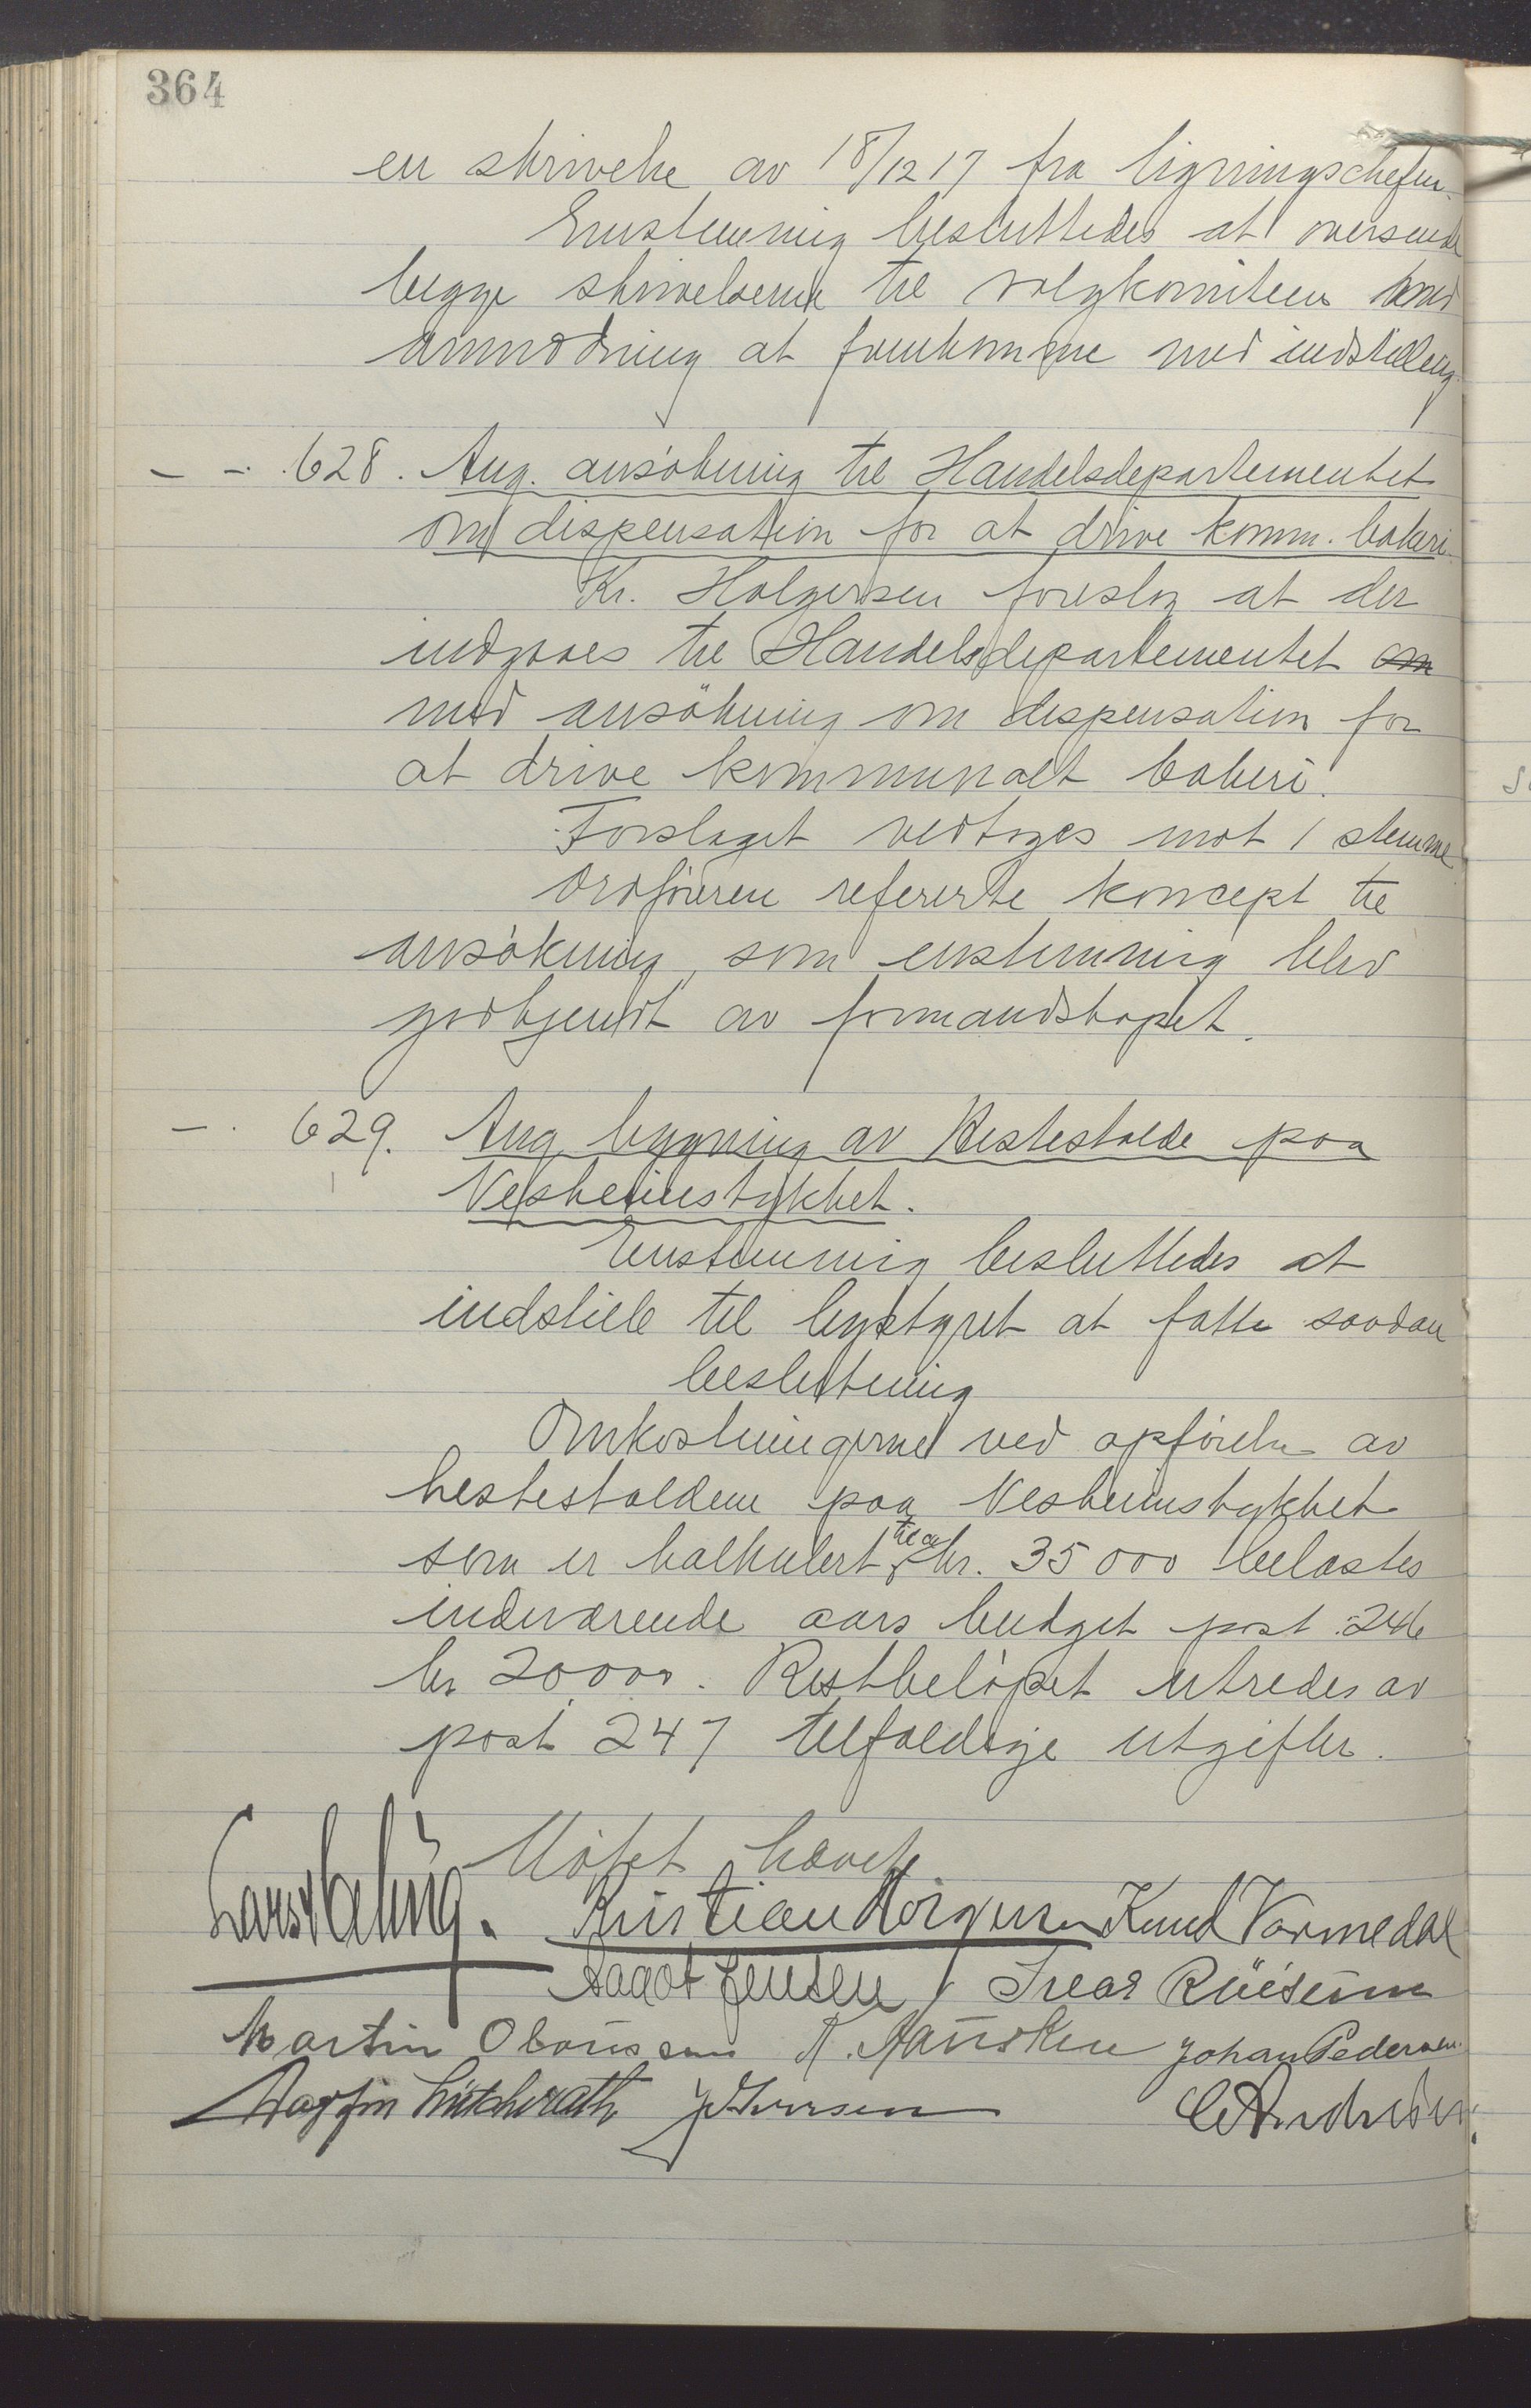 364
en skrivelse av 18/12 17 fra ligningschefen.
Enstemmig besluttedes at oversende
begge skrivelserne til valgkomiteen med
anmodning at fremkomme med indstilling.
— — 628. Ang. ansøkning til Handelsdepartementet
om dispensation for at drive komm. bakeri.
Kr. Holgersen foreslog at der
indgaaes til Handelsdepartementet om
med ansökning om dispensation for
at drive kommunalt bakeri.
Forslaget vedtoges mot 1 stemme
Ordføreren refererte koncept til
ansøkning, som enstemmig blev
godkjendt av formandskapet.
— . 629. Ang. bygning av Hestestalde paa
Nesheimstykket.
Enstemmig besluttedes at
indstille til bystyret at fatte saadan
beslutning
Omkostningerne ved opførelse av
hestestaldene paa Nesheimstykket
som er kalkulert til ca kr. 35 000 belastes
indeværende aars budget post 246
kr 20000. Restbeløpet utredes av
post 247 tilfældige utgifter.
Møtet hævet
Kristian Knud Varmedal
Aagot Jensen
Martin Johan Pedersen
J Iversen